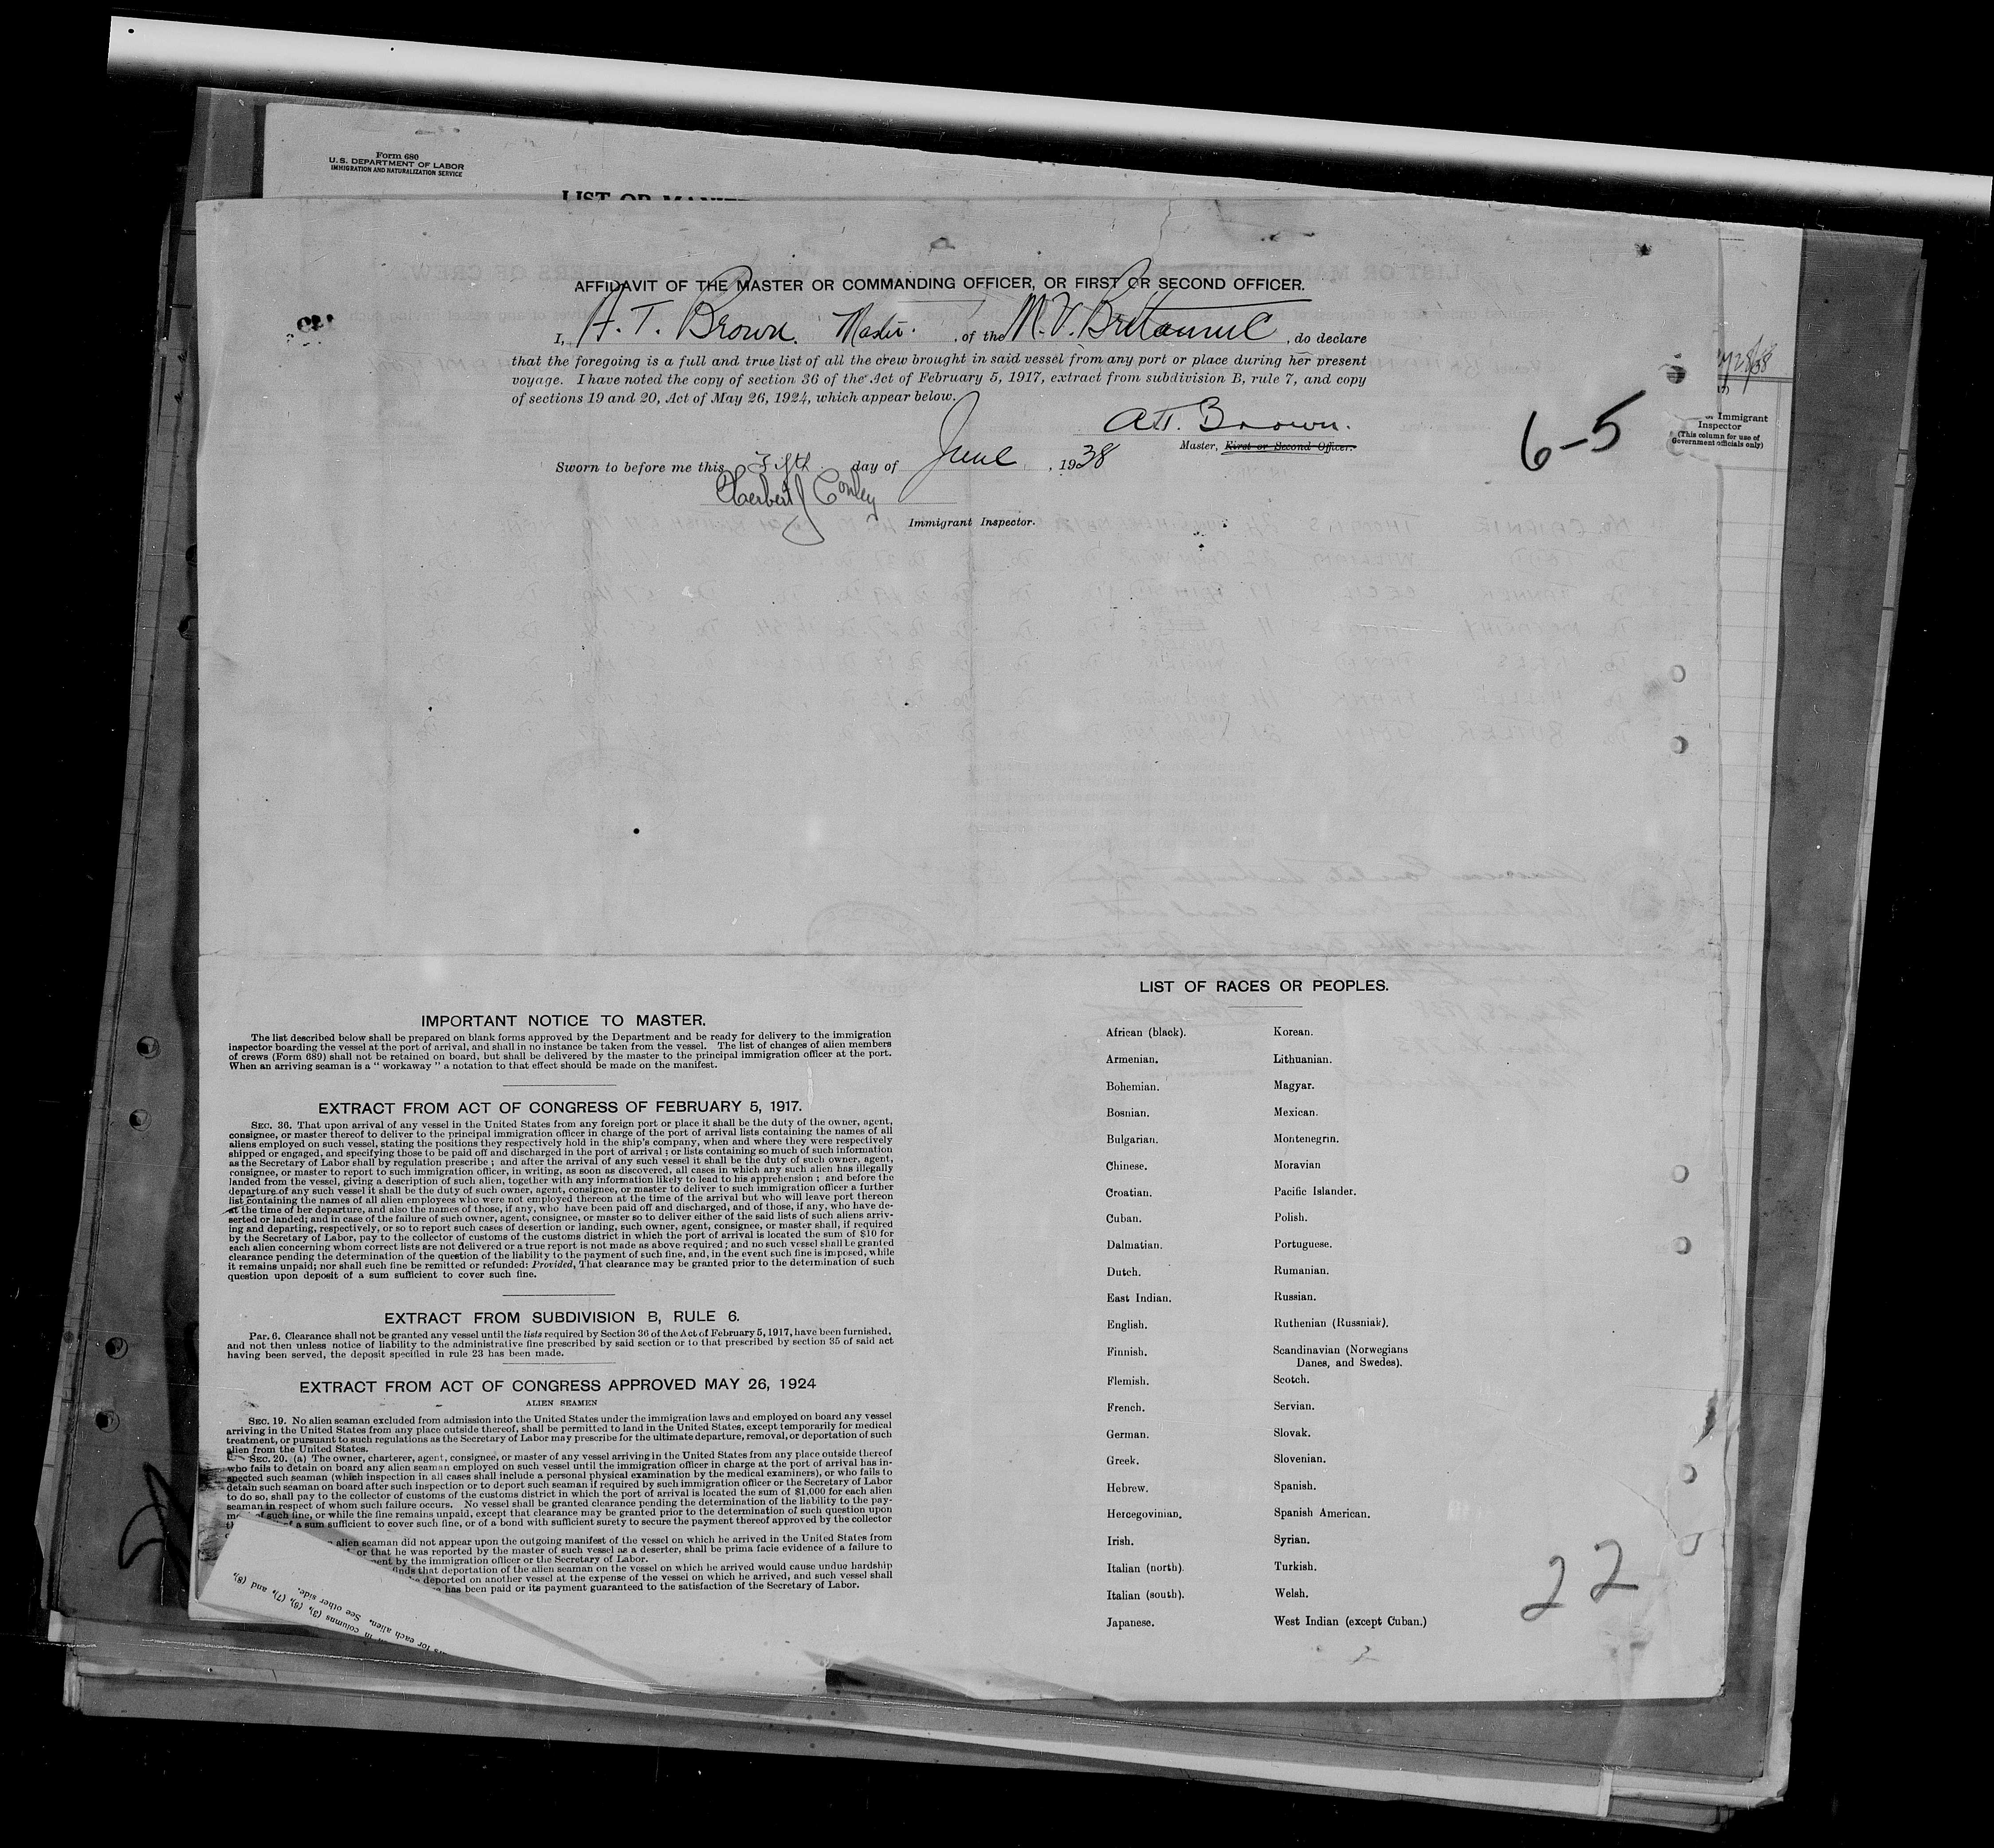 Form 680
U. S. DEPARTMENT OF LABOR
IMMIGRATION AND NATURALIZATION SERVICE
AFFIDAVIT OF THE MASTER OR COMMANDING OFFICER, OR FIRST OR SECOND OFFICER.
I, A. T. Brown. Master. , of the M. V. Britannic , do declare
that the foregoing is a full and true list of all the crew brought in said vessel from any port or place during her present
voyage. I have noted the copy of section 36 of the Act of February 5, 1917, extract from subdivision B, rule 7, and copy
of sections 19 and 20, Act of May 26, 1924, which appear below.
A.T. Brown.
Master, First or Second Officer.
Sworn to before me this Fifth day of June , 1938
Herbert J Conley
Immigrant Inspector.
6-5
Immigrant
Inspector
(This column for use of
Government officials only)
IMPORTANT NOTICE TO MASTER.
The list described below shall be prepared on blank forms approved by the Department and be ready for delivery to the immigration
inspector boarding the vessel at the port of arrival, and shall in no instance be taken from the vessel. The list of changes of alien members
of crews (Form 689) shall not be retained on board, but shall be delivered by the master to the principal immigration officer at the port.
When an arriving seaman is a " workaway " a notation to that effect should be made on the manifest.
EXTRACT FROM ACT OF CONGRESS OF FEBRUARY 5, 1917.
SEC. 36. That upon arrival of any vessel in the United States from any foreign port or place it shall be the duty of the owner, agent,
consignee, or master thereof to deliver to the principal immigration officer in charge of the port of arrival lists containing the names of all
aliens employed on such vessel, stating the positions they respectively hold in the ship's company, when and where they were respectively
shipped or engaged, and specifying those to be paid off and discharged in the port of arrival ; or lists containing so much of such information
as the Secretary of Labor shall by regulation prescribe ; and after the arrival of any such vessel it shall be the duty of such owner, agent,
consignee, or master to report to such immigration officer, in writing, as soon as discovered, all cases in which any such alien has illegally
landed from the vessel, giving a description of such alien, together with any information likely to lead to his apprehension ; and before the
departure of any such vessel it shall be the duty of such owner, agent, consignee, or master to deliver to such immigration officer a further
list containing the names of all alien employees who were not employed thereon at the time of the arrival but who will leave port thereon
at the time of her departure, and also the names of those, if any, who have been paid off and discharged, and of those, if any, who have de-
serted or landed; and in case of the failure of such owner, agent, consignee, or master so to deliver either of the said lists of such aliens arriv-
ing and departing, respectively, or so to report such cases of desertion or landing, such owner, agent, consignee, or master shall, if required
by the Secretary of Labor, pay to the collector of customs of the customs district in which the port of arrival is located the sum of $10 for
each alien concerning whom correct lists are not delivered or a true report is not made as above required ; and no such vessel shall be granted
clearance pending the determination of the question of the liability to the payment of such fine, and, in the event such fine is imposed, while
it remains unpaid; nor shall such fine be remitted or refunded: Provided, That clearance may be granted prior to the determination of such
question upon deposit of a sum sufficient to cover such fine.
EXTRACT FROM SUBDIVISION B, RULE 6.
Par. 6. Clearance shall not be granted any vessel until the lists required by Section 36 of the Act of February 5, 1917, have been furnished,
and not then unless notice of liability to the administrative fine prescribed by said section or to that prescribed by section 35 of said act
having been served, the deposit specified in rule 23 has been made.
EXTRACT FROM ACT OF CONGRESS APPROVED MAY 26, 1924
ALIEN SEAMEN
SEC. 19. No alien seaman excluded from admission into the United States under the immigration laws and employed on board any vessel
arriving in the United States from any place outside thereof, shall be permitted to land in the United States, except temporarily for medical
treatment, or pursuant to such regulations as the Secretary of Labor may prescribe for the ultimate departure, removal, or deportation of such
alien from the United States.
SEC. 20. (a) The owner, charterer, agent, consignee, or master of any vessel arriving in the United States from any place outside thereof
who fails to detain on board any alien seaman employed on such vessel until the immigration officer in charge at the port of arrival has in-
spected such seaman (which inspection in all cases shall include a personal physical examination by the medical examiners), or who fails to
detain such seaman on board after such inspection or to deport such seaman if required by such immigration officer or the Secretary of Labor
to do so, shall pay to the collector of customs of the customs district in which the port of arrival is located the sum of $1,000 for each alien
seaman in respect of whom such failure occurs. No vessel shall be granted clearance pending the determination of the liability to the pay-
of such fine, or while the fine remains unpaid, except that clearance may be granted prior to the determination of such question upon
of a sum sufficient to cover such fine, or of a bond with sufficient surety to secure the payment thereof approved by the collector
alien seaman did not appear upon the outgoing manifest of the vessel on which he arrived in the United States from
or that he was reported by the master of such vessel as a deserter, shall be prima facie evidence of a failure to
by the immigration officer or the Secretary of Labor.
finds that deportation of the alien seaman on the vessel on which he arrived would cause undue hardship
deported on another vessel at the expense of the vessel on which he arrived, and such vessel shall
has been paid or its payment guaranteed to the satisfaction of the Secretary of Labor.
for each alien. See other side.
in columns (3), (6), (7), and (8),
LIST OF RACES OR PEOPLES.
African (black).
Armenian.
Bohemian.
Bosnian.
Bulgarian.
Chinese.
Croatian.
Cuban.
Dalmatian.
Dutch.
East Indian.
English.
Finnish.
Flemish.
French.
German.
Greek.
Hebrew.
Hercegovinian.
Irish.
Italian (north).
Italian (south).
Japanese.
Korean.
Lithuanian.
Magyar.
Mexican.
Montenegrin.
Moravian
Pacific Islander.
Polish.
Portuguese.
Rumanian.
Russian.
Ruthenian (Russniak).
Scandinavian (Norwegians
Danes, and Swedes).
Scotch.
Servian.
Slovak.
Slovenian.
Spanish.
Spanish American.
Syrian.
Turkish.
Welsh.
West Indian (except Cuban.)
22